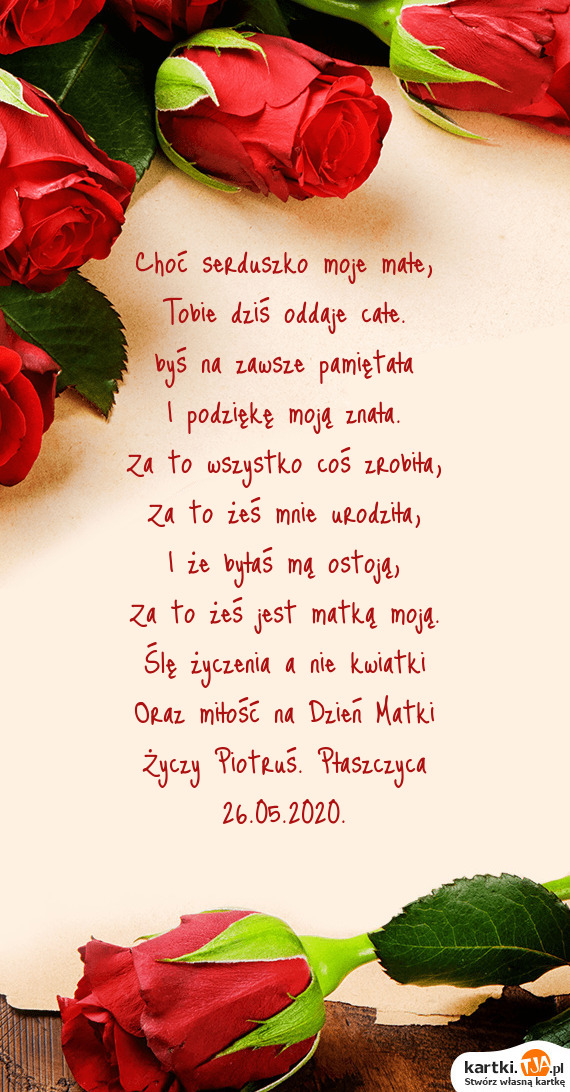 Choć serduszko moje małe,
Tobie dziś oddaje całe.
byś na zawsze pamiętała
I podziękę moją znała.
Za to wszystko coś zrobiła,
Za to żeś mnie urodziła,
I że byłaś mą ostoją,
Za to żeś jest matką moją.
Ślę życzenia a nie kwiatki
Oraz miłość na Dzień Matki
Życzy Piotruś. Płaszczyca
26.05.2020.
kartki.TJA.pl
Stwórz własną kartkę